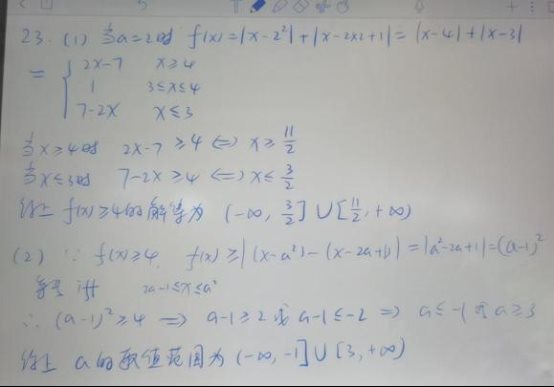 23. (1) 当a=2时 f(x)=|x-2²|+|x-2×2+1|=|x-4|+|x-3|
= { 2x-7 x≥4
1 3≤x≤4
7-2x x≤3
当x≥4时 2x-7≥4 <=> x≥11/2
当x≤3时 7-2x≥4 <=> x≤3/2
综上 f(x)≥4的解集为 (-∞, 3/2]∪[11/2, +∞)
(2) ∵ f(x)≥4, f(x)≥|(x-a²)-(x-2a+1)|=|a²-2a+1|=(a-1)²
等号 2a-1≤x≤a²
∴ (a-1)²≥4 => a-1≥2或a-1≤-2 => a≤-1或a≥3
综上 a的取值范围为 (-∞, -1]∪[3, +∞)